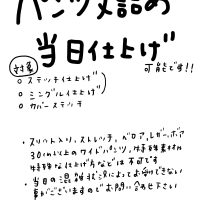 パンツ丈詰の
当日仕上げ
可能です!!
対象
○ ステッチ仕上げ
○ シングル仕上げ
○ カバーステッチ
・スリット入り、ストレッチ、ベロア、レザー、ボア
30cm以上のワイドパンツ、特殊素材
特殊な仕上げ方などは不可です
・当日の混雑状況によってお受けできない
事がございますのでお問い合わせ下さい